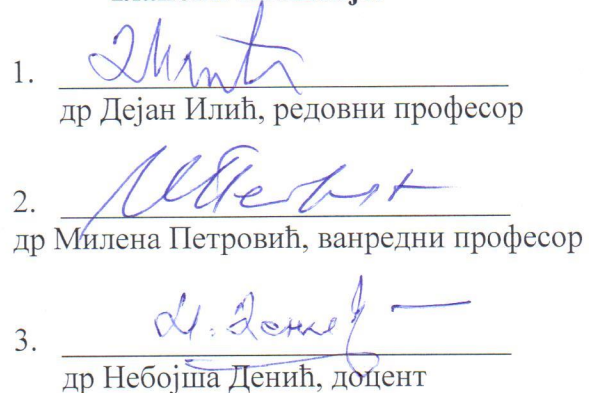 1.
др Дејан Илић, редовни професор
2.
др Милена Петровић, ванредни професор
3.
др Небојша Денић, доцент